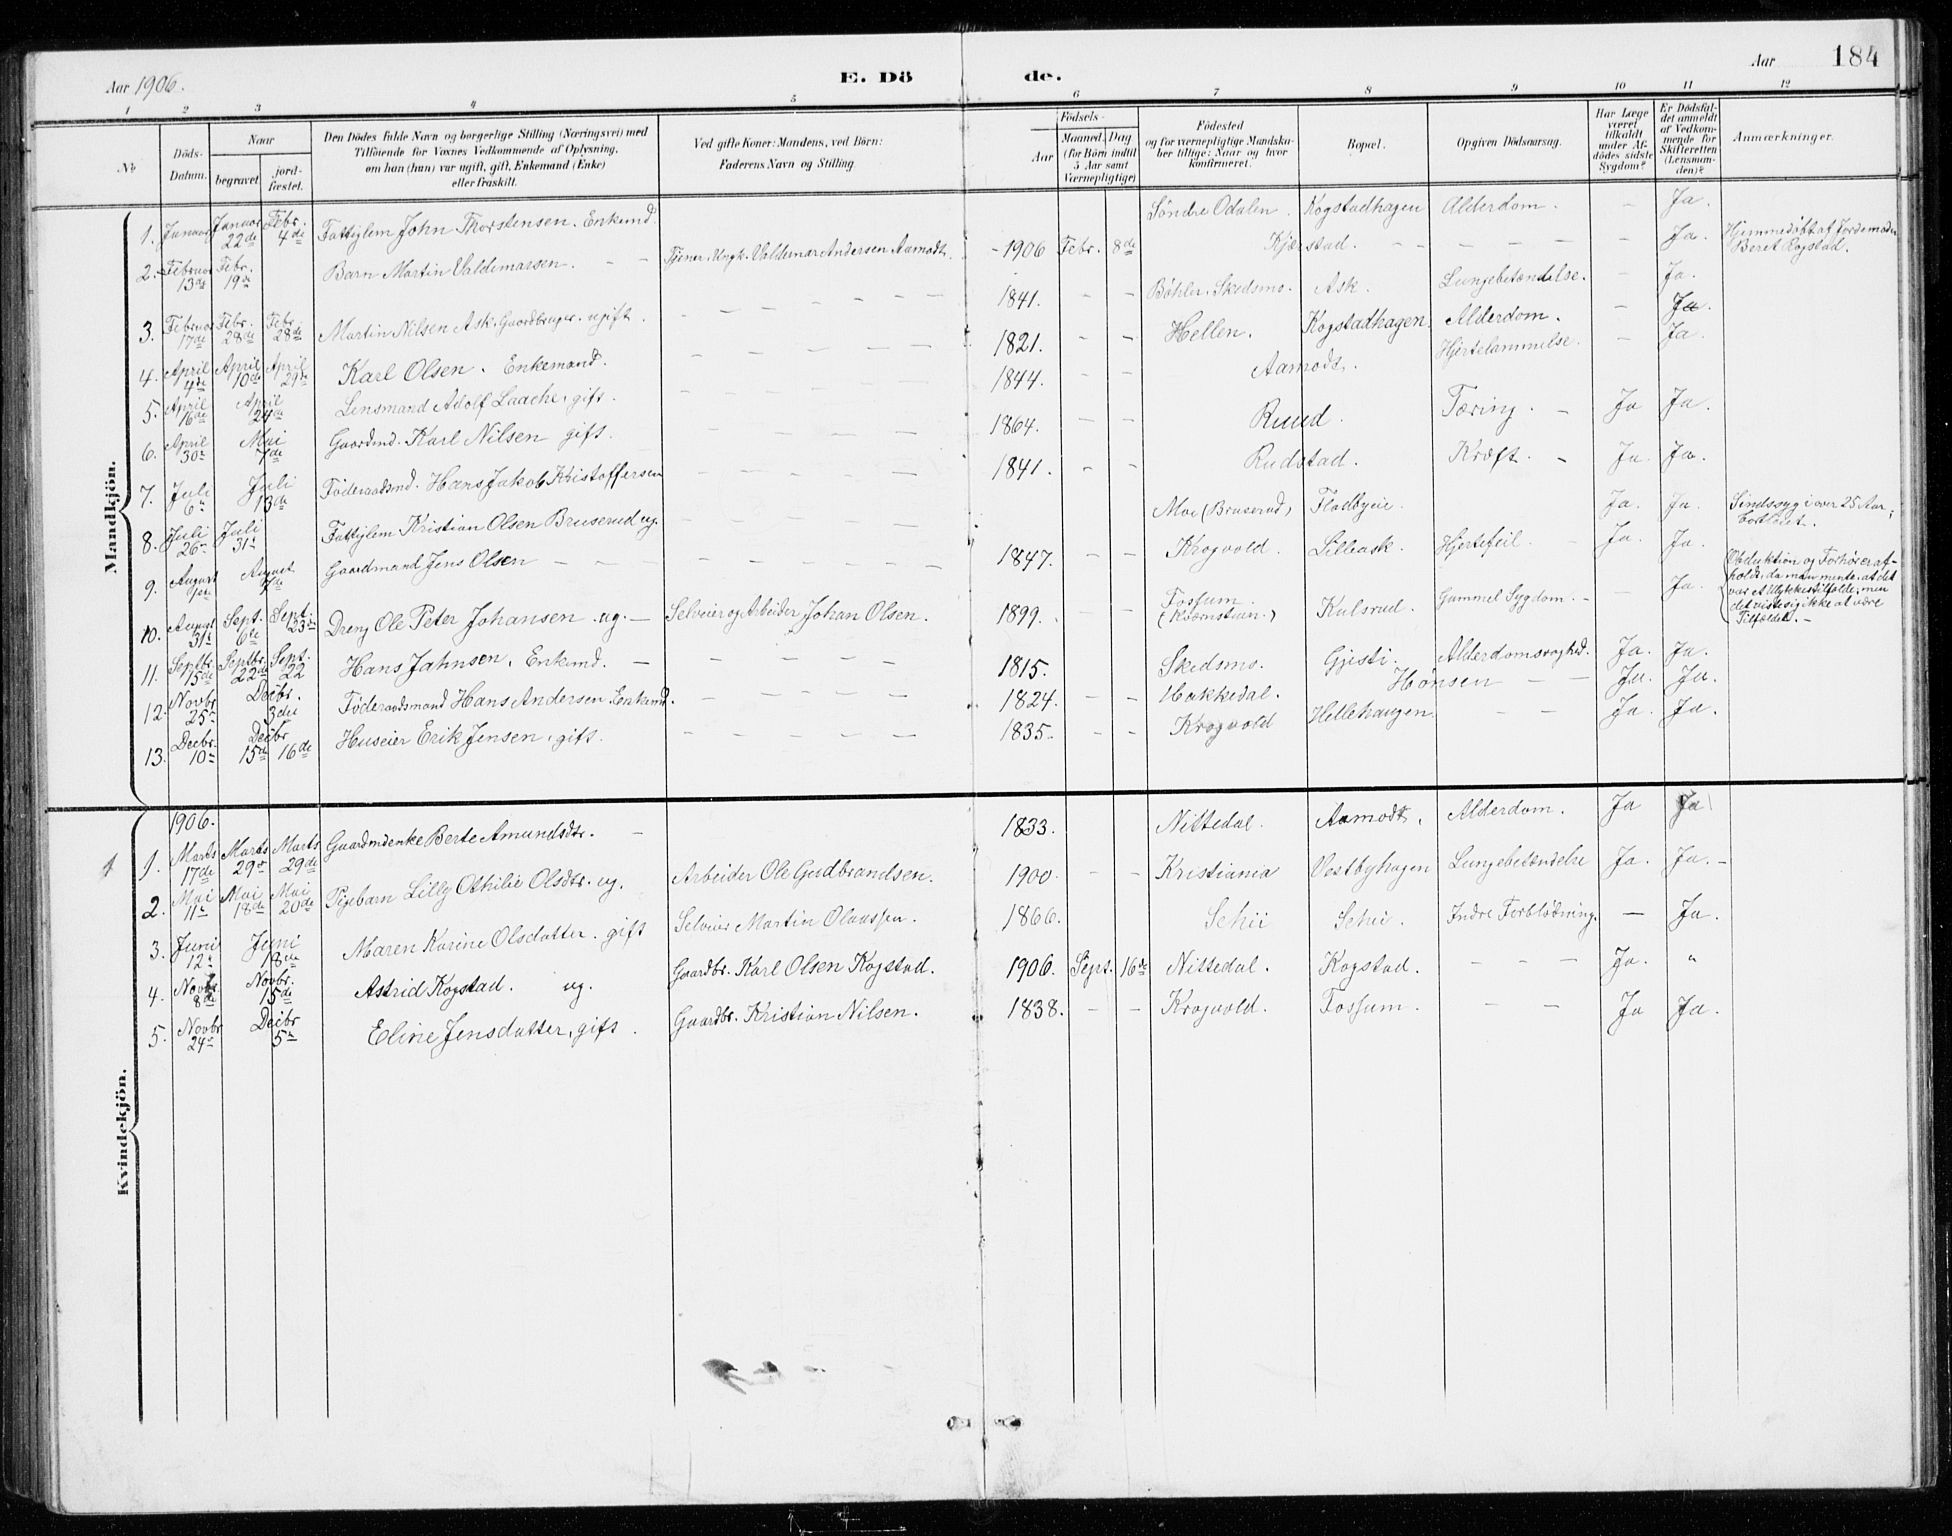 Aar 1906.
E. Dö de.
Aar 184
1 2 3 4 5 6 7 8 9 10 11 12
No
Döds-Datum.
Naar
begravet.
jord-fæstet.
Den Dödes fulde Navn og borgerlige Stilling (Næringsvei) med
Tilföiende for Voxnes Vedkommende af Oplysning,
om han (hun) var ugift, gift, Enkemand (Enke)
eller fraskilt.
Ved gifte Koner: Mandens, ved Börn:
Faderens Navn og Stilling
Födsels-
Aar
Maaned. Dag
(for Börn indtil
5 Aar samt
Værnepligtige)
Födested
og for værnepligtige Mandska-
ber tillige: Naar og hvor
konfirmeret.
Bopæl.
Opgiven Dödsaarsag.
Har Læge
været
tilkaldt
under Af-
dödes sidste
Sygdom?
Er Dödsfal-
det anmeldt
af Vedkom-
mende for
Skifteretten
(Lensman-
den)?
Anmærkninger.
Mandkjön.
1. Januar Januar 22de Febr. 4de Fattiglem John Thorstensen. Enkemd. Søndre Odalen. Kogstadhagen Alderdom. – Ja.
2. Februar 13de Febr. 19de Barn Martin Valdemarsen. – – Tjener, Ungk. Valdemar Andersen Aamodt. 1906 Febr. 8de Kjærstad. – – – – Ja. Hjemmedøbt af Jordemoder Beret Rogstad.
3. Februar 17de Febr. 28de Febr. 28de Martin Nilsen Ask. Gaardbruger. ugift. – – – – – 1841. – – Bøhler, Skedsmo. Ask. Lungebetændelse. – Ja.
4. April 4de April 10de April 29de Karl Olsen. Enkemand. – – – – – 1821. – – Hellen. Kogstadhagen. Alderdom. – Ja. Ja.
5. April 16de April 24de Lensmand Adolf Laache, gift. – – – – – 1844. – – Aamodt. Hjertelammelse. –
6. April 30te Mai 7de Gaardmd. Karl Nilsen gift. – – – – – 1864. – – Ruud. Tæring. – Ja Ja.
7. Juli 6te Juli 13de Føderaadsmd. Hans Jakob Kristoffersen – – – – – 1841. – – Rudstad. Kræft. – Ja. Ja.
8. Juli 26de Juli 31te Fattiglem Kristian Olsen Bruserud ug. – – – – – Moe (Bruserud) Fladbyeie. Ja. Ja. Sindssyg i over 25 Aar;
9. August August 7de Gaardmand Jens Olsen – – – – – – – 1847. – – Krogvold. Lilleask. Hjertefeil. – Ja. Ja.
10. August 31te Sept. 6te Sept. 23de Dreng Ole Peter Johansen. ug. – Selveier og Arbeider Johan Olsen. 1899. Fossum (Kværnstuen.) Kulsrud. Gammel Sygdom. – – Ja. Obduktion og Forhører af-
holdt, da man mente, at det
var et Ulykkestilfælde; men
det viste sig ikke at være
Tilfældet. –
11. Septbr. 15de Septbr. 22de Sept. 22 Hans Jahnsen. Enkemd. – – – – – – 1815. Skedsmo. Gjesti. Alderdomssvaghed. Ja. Ja.
12. Novbr 25de Decbr. 3die Føderaadsmand Hans Andersen. Enkemd. – – – – – 1824. – – Hakkedal. Hønsen – – Ja. Ja.
13. Decbr. 10de Decbr 15de 16de Huseier Erik Jensen, gift. – – – – – 1835. – – Krogvold Hellehaugen. – – Ja. Ja.
Kvindekjön.
1906.
1. Marts 17de Marts 29de Marts 29de Gaardmdenke Berte Amundsdtr. – 1833. Nittedal. Aamodt. Alderdom. Ja Ja
2. Mai 11te Mai 18de Mai 20de Pigebarn Lilly Othilie Olsdtr. ug. Arbeider Ole Gudbrandsen. 1900. – – Kristiania Vestbyhagen Lungebetændelse Ja. Ja. –
3. Juni 12te Juni 18de Maren Karine Olsdatter. gift Selveier Martin Olaussen. 1866. Sehii Sehii. Indre Forblødning. – Ja.
4. Novbr 8de Novbr. 15de Astrid Kogstad. ug. Gaardbr. Karl Olsen Kogstad. 1906. Sept. 16de Nittedal. Kogstad. – – – Ja. "
5. Novbr 24de Decbr 5te Eline Jensdatter, gift. Gaardbr. Kristian Nilsen. 1838. – – Krogvold. Fossum. – – Ja Ja.